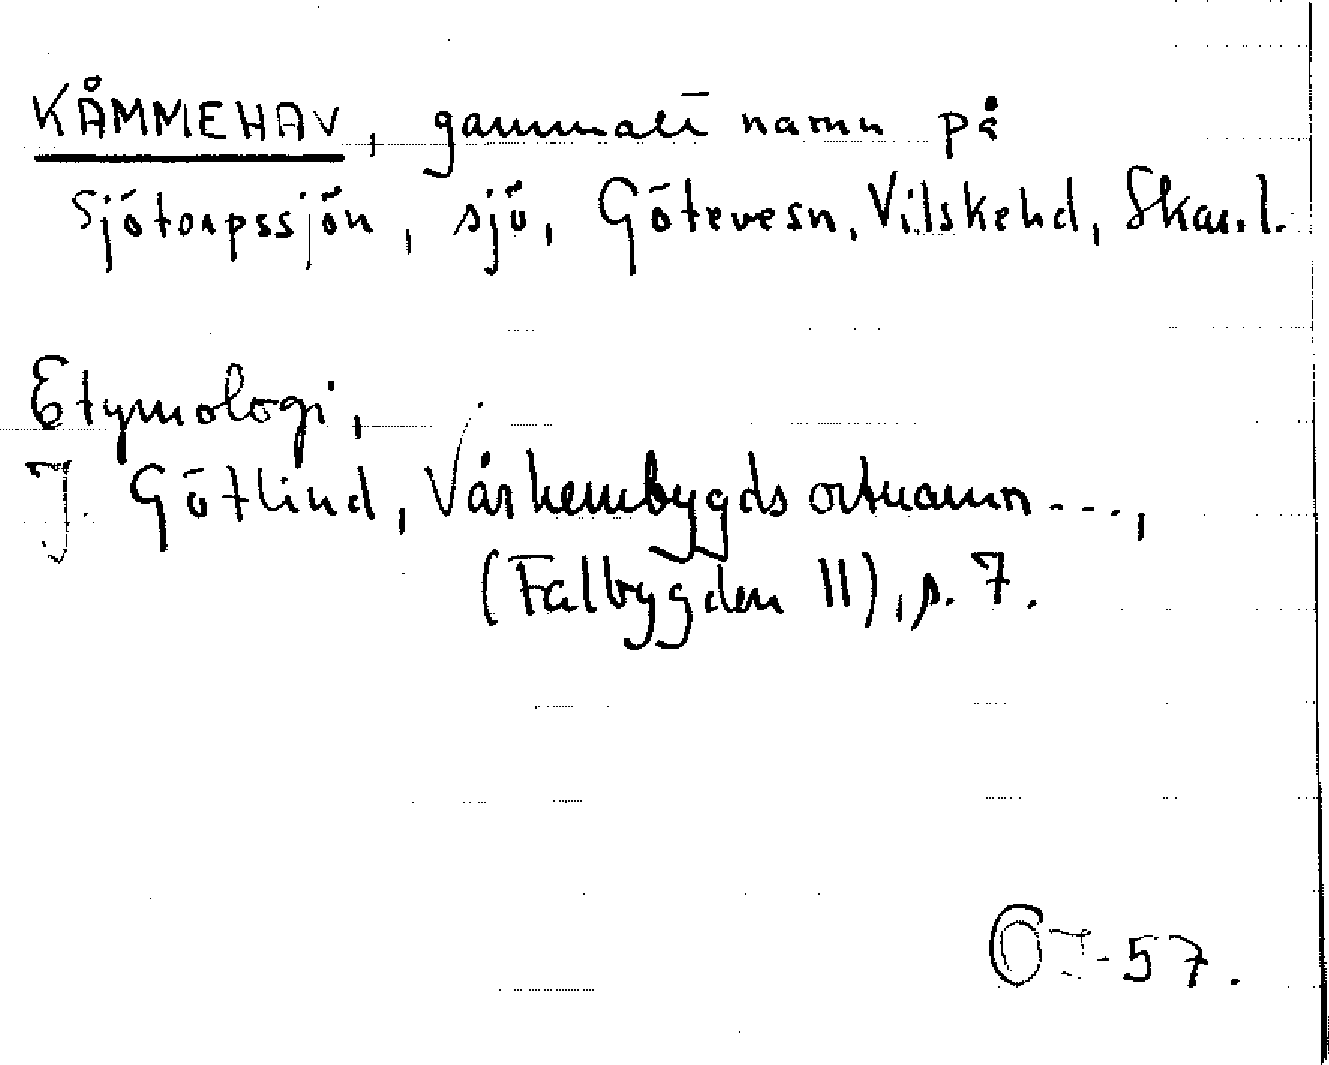 KÅMMEHAV, gammalt namn på
Sjötorpssjön, sjö, Götevesn, Vilskehd, Skar.l.
Etymologi,
J. Götlind, Vår hembygds ortnamn ...,
(Falbygden II), p. 7.
57.